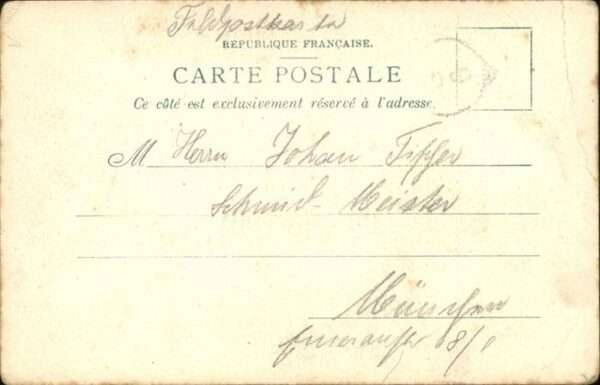 Feldpostkarte
REPUBLIQUE FRANÇAISE.
CARTE POSTALE
Ce côté est exclusivement réservé à l'adresse.
M Herrn Johan
Schmid-Meister
München
8/1